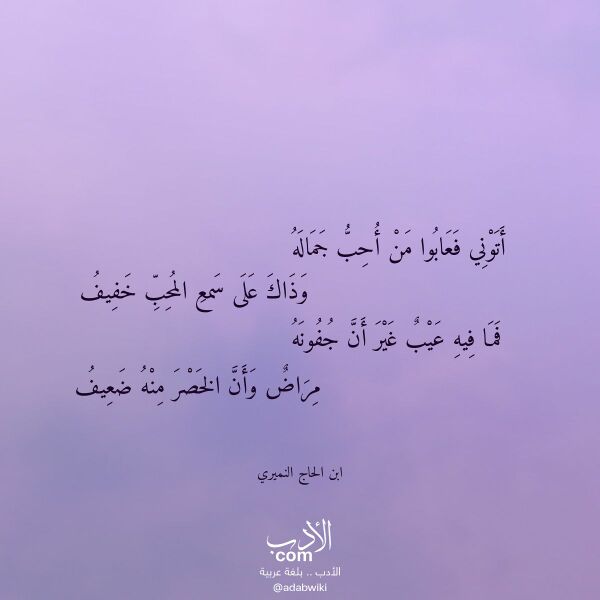 أَتَوْنِي فَعَابُوا مَنْ أُحِبُّ جَمَالَهُ
وَذَاكَ عَلَى سَمعِ المُحِبِّ خَفِيفُ
فَمَا فِيهِ عَيْبٌ غَيْرَ أَنَّ جُفُونَهُ
مِرَاضٌ وَأَنَّ الخَصْرَ مِنْهُ ضَعِيفُ
ابن الحاج النميري
الأدب
com
الأدب .. بلغة عربية
@adabwiki